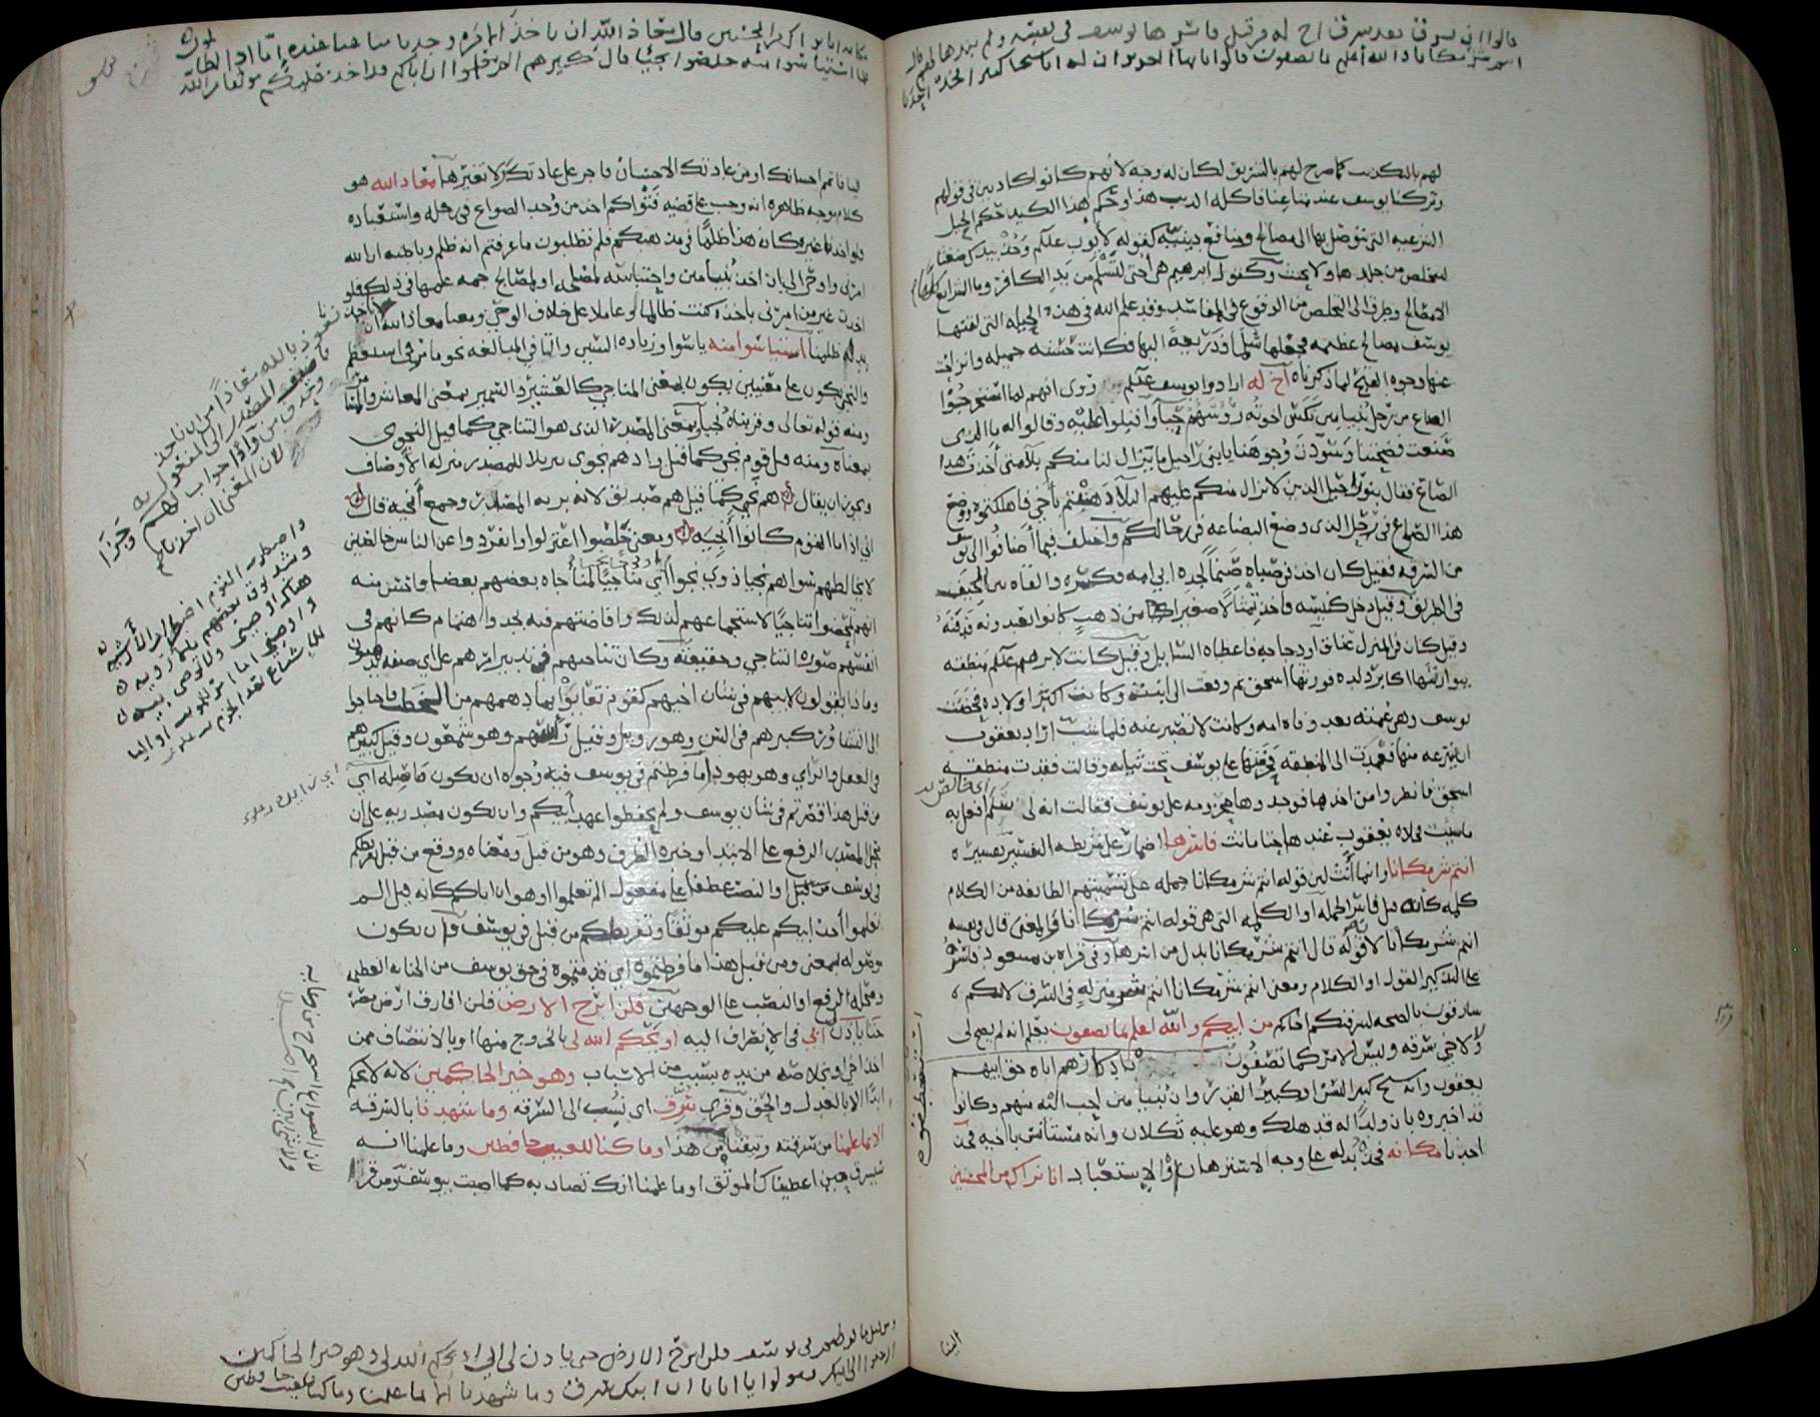 قالوا ان يسرق فقد سرق اخ له من قبل فاسرها يوسف في نفسه ولم يبدها لهم قال
انتم شر مكانا والله أعلم بما تصفون قالوا يا ايها العزيز ان له ابا شيخا كبيرا فخذ احدنا
لهم بالكذب كما صرح لهم بالتسريق لكان له وجه لانهم كانوا كاذبين في قولهم
وتركنا يوسف عند متاعنا فاكله الذيب هذا وحكم هذا الكيد حكم الحيل
الشرعية التي يتوصل بها الى مصالح ومنافع دينية كقوله لأيوب عليكم وخذ بيدك ضغثا
ليتخلص من جلدها ولا يحنث وكقول ابرهيم هي أختي لتسلم من يد الكافر وما الشرايع
الا مصالح وطرق الى التخلص من الوقوع في المفاسد وقد علم الله في هذه الحيلة التي لقنها
يوسف مصالح عظيمه فجعلها سلما وذريعة اليها فكانت حسنه جميله وانزاحت
عنها وجوه القبح لما ذكرناه أخ له ارادوا يوسف عليكم روى انهم لما استخرجوا
الصاع من رحل بنيامين نكس اخوته رؤسهم حيآ واقبلوا عليه وقالوا له ما الذى
صنعت فضحتنا وسودت وجوهنا يا بنى راحيل ما يزال لنا منكم بلآ متى أخذت هذا
الصاع فقال بنو راحيل الذين لا يزال منكم عليهم البلآ ذهبتم باخي فاهلكتموه ووضع
هذا الصواع في رحلى الذى وضع البضاعه في رحالكم واختلف فيما أضافوا الى يوسف
من السرقه فقيل كان اخذ في صباه صنماً لجده ابي امه فكسره والقاه بين الجيف
في الطريق وقيل دخل كنيسه فاخذ تمثالا صغيرا من ذهب كانوا يعبدونه فدفنه
وقيل كان في المنزل عناق او دجاجه فاعطاه السايل وقيل كانت لابرهيم عليكم منطقه
يتوارثها اكابر ولده فورثها اسحق ثم وقعت الى ابنته وكانت اكبر اولاده فحضنت
يوسف وهي عمته بعد وفاة امه وكانت لا تصبر عنه فلما شب اراد يعقوب
ان ينتزعه منها فعمدت الى المنطقه فحزمتها على يوسف تحت ثيابه وقالت فقدت منطقه
اسحق فانظروا من اخذها فوجدوها محزومه على يوسف فقالت انه لى سلم افعل به
ماشيت فخلاه يعقوب عندها حتى ماتت فاسرها اضمار على شريطه التفسير تفسيره
انتم شر مكانا وانما أنث لان قوله انتم شر مكانا جمله على تسميتهم الطايفه من الكلام
كلمه كأنه قيل فاسر الجمله او الكلمه التي هي قوله انتم شر مكانا والمعنى قال في نفسه
انتم شر مكانا لان قوله قال انتم شر مكانا بدل من اسرها وفي قراه بن مسعود فاسره
على التذكير القول او الكلام ومعنى انتم شر مكانا انتم شر منزله في السرق لانكم
سارقون بالصحه لسرقتكم اخاكم من ابيكم والله اعلم بما تصفون يعلم انه لم يصح لى
ولا لاخي سرقه وليس الامر كما تصفون باذكارهم اياه حق ابيهم
يعقوب وانه شيخ كبير السن او كبير القدر وان بنيامين احب اليه منهم وكانوا
قد اخبروه بان ولداً له قد هلك وهو عليه ثكلان وانه مستأنس باخيه فخذ
احدنا مكانه فخذه بدله على وجه الاسترهان او الاستعباد انا نراك من المحسنين
استعطفوه
الينا
مكانه انا نراك من المحسنين قال معاذ الله ان ناخذ الا من وجدنا متاعنا عنده انا اذا لظالمون
فلما استيأسوا منه خلصوا نجيا قال كبيرهم الم تعلموا ان اباكم قد اخذ عليكم موثقا من الله
الينا فاتمم احسانك او من عادتك الاحسان فاجر على عادتك ولا تغيرها معاذ الله هو
كلام موجه ظاهره انه وجب على قضيه فتواكم اخذ من وجد الصواع في رحله واستعباده
فلو اخذنا غيره كان هذا ظلما في مذهبكم فلم تطلبون ما عرفتم انه ظلم وباطنه ان الله
امرنى واوحى الى بان اخذ بنيامين واحتباسه لمصلحه او لمصالح جمه علمها في ذلك فلو
اخذت غير من امرنى باخذه كنت ظالما وعاملا على خلاف الوحي ومعنا معاذ الله ان
بدله ظلمنا استياسوا منه يأسوا وزياده السين والتا في المبالغه نحو ما مر في استعظم
والنجي يكون على معنيين يكون بمعنى المناجي كالعشير والسمير بمعنى المعاشر والمسامر
ومنه قوله تعالى وقربناه نجيا وبمعنى المصدر الذى هو التناجي كما قيل النجوى
بمعناه ومنه قيل قوم نجى كما قيل واذ هم نجوى تنزيلا للمصدر منزله الاوصاف
ويجوز ان يقال هم نجى كما قيل هم صديق لانه بزنه المصادر وجمع أنجيه قال
انى اذا ما القوم كانوا أنجيه ومعنى خلصوا اعتزلوا وانفردوا عن الناس خالصين
لا يخالطهم سواهم نجيا ذوى نجوا أي مناجيا لمناجاه بعضهم بعضا واحسن منه
انهم تمحضوا تناجيا لاستجماعهم لذلك وافاضتهم فيه بجد واهتمام كانهم في
انفسهم صوره التناجي وحقيقته وكان تناجيهم في تدبير امرهم على اي صفه يذهبون
وماذا يقولون لابيهم في شان اخيهم كقوم تعايوا بما دهمهم من الخطب فاحتاجوا
الى التشاور كبيرهم في السن وهو روبيل وقيل رئيسهم وهو شمعون وقيل كبيرهم
في العقل والراي وهو يهوذا ما فرطتم في يوسف فيه وجوه ان تكون ما صله أي
من قبل هذا قصرتم في شان يوسف ولم تحفظوا عهد أبيكم وان تكون مصدريه على أن
محل المصدر الرفع على الابتدا وخبره الظرف وهو من قبل ومعناه ووقع من قبل تفريطكم
في يوسف من قبل او النصب عطفا على مفعول الم تعلموا وهو ان اباكم كانه قيل الم
تعلموا أخذ ابيكم عليكم موثقا وتفريطكم من قبل في يوسف وان تكون
موصوله بمعنى ومن قبل هذا ما فرطتموه اي قدمتموه في حق يوسف من الجنايه العظيمه
ومحله الرفع او النصب على الوجهين فلن ابرح الارض فلن افارق ارض مصر
حتى ياذن أبي في الانصراف اليه او يحكم الله لى بالخروج منها او بالانتصاف ممن
اخذ اخي او بخلاصه من يده بسبب من الاسباب وهو خير الحاكمين لانه لا يحكم
ابدا الا بالعدل والحق وقرى سرق اى نسب الى السرقه وما شهدنا بالسرقه
الا بما علمنا من سرقته وتيقنا من هذا وما كنا للغيب حافظين وما علمنا انه
سيسرق حين اعطيناك الموثق او ما علمنا انك تصاب به كما اصبت بيوسف ومن قرا
نعوذ بالله معاذا من ان ناخذ
فاضيف المصدر الى المفعول به
وحذف من واذا جواب لهم وجزا
لان المعنى ان اخذنا بدله
واضطرب القوم اضطراب الأرشيه
وشد فوق بعضهم بالارويه
هناك اوصيني ولا توصي بيه
ومن قبل ما فرطتم في يوسف فلن ابرح الارض حتى ياذن لى ابي او يحكم الله لى وهو خير الحاكمين
ارجعوا الى ابيكم فقولوا يا ابانا ان ابنك سرق وما شهدنا الا بما علمنا وما كنا للغيب حافظين